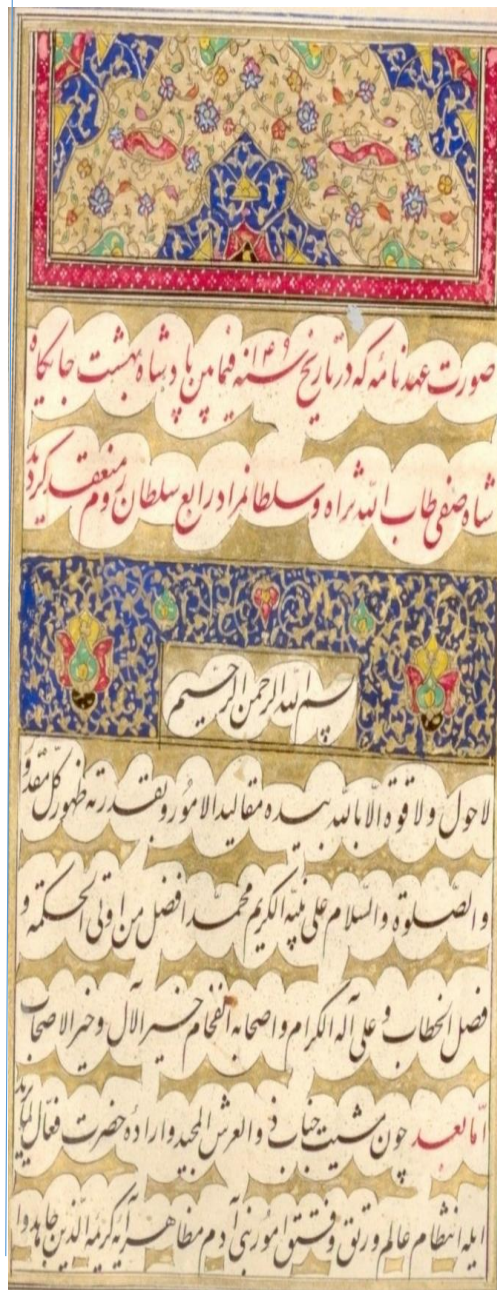 صورت عهدنامه که در تاریخ سنه ۱۰۴۹ فیمابین پادشاه بهشت جایگاه
شاه صفی طاب الله ثراه و سلطانمراد رابع سلطان روم منعقد گردید
بسم الله الرحمن الرحیم
لاحول ولا قوة الا بالله بیده مقالید الامور و بقدرته ظهور کل مقدور
والصلوة والسلام علی نبیه الکریم محمد افضل من اوتی الحکمة و
فصل الخطاب و علی آله الکرام و اصحابه الفخام خیر الآل و خیر الاصحاب
اما بعد چون مشیت جناب ذوالعرش المجید و اراده حضرت فعال لما یرید
ایله انتظام عالم و رتق و فتق امور بنی آدم مظاهر آیه کریمه الذین جاهدوا